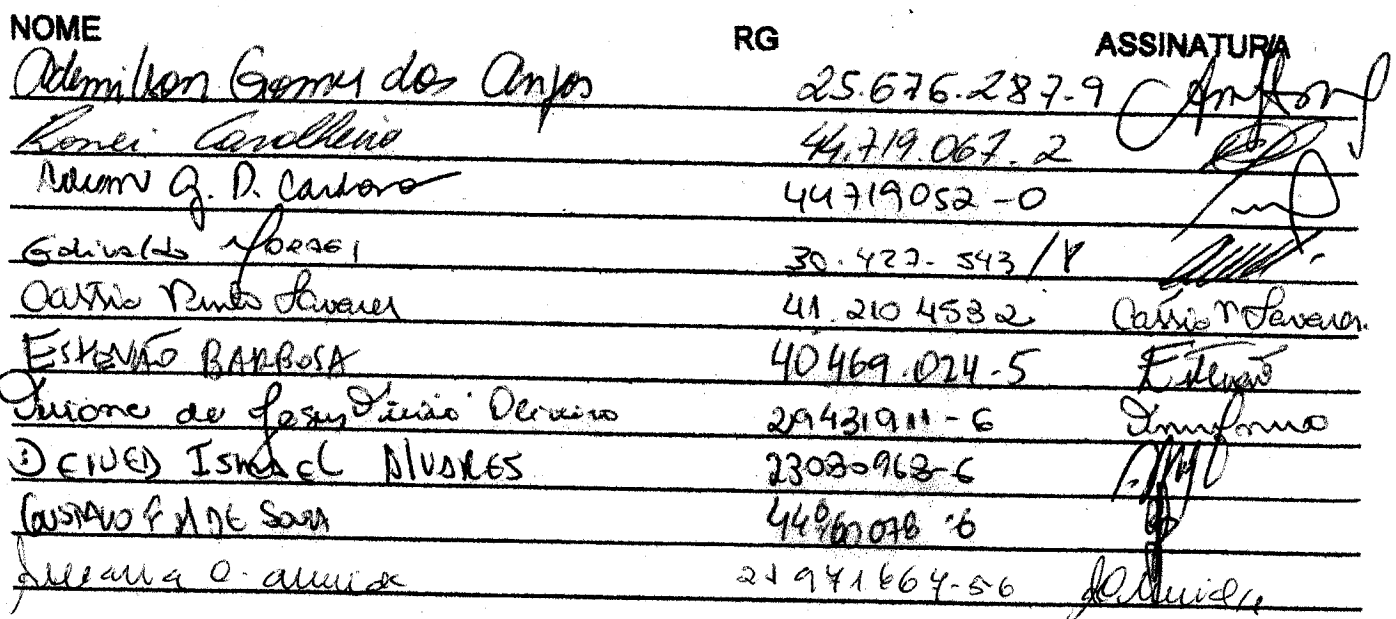 NOME RG ASSINATURA
Ademilson Gomes dos Anjos 25.676.287-9
Ronei Cavalheiro 44.719.067.2
G. D. Cardoso 44719052-0
Edivaldo Moraes 30.427.543
Cassio Pinto Tavares 41.210 4532 Cássio P Tavares.
ESTEVÃO BARBOSA 40469.024-5 Estevão
de Jesus Oliveira 29431911-6
DEIVED ISMAEL ALVARES 23030963-6
GUSTAVO F A DE SOUZA
Juliana O. Almeida 21971664-56